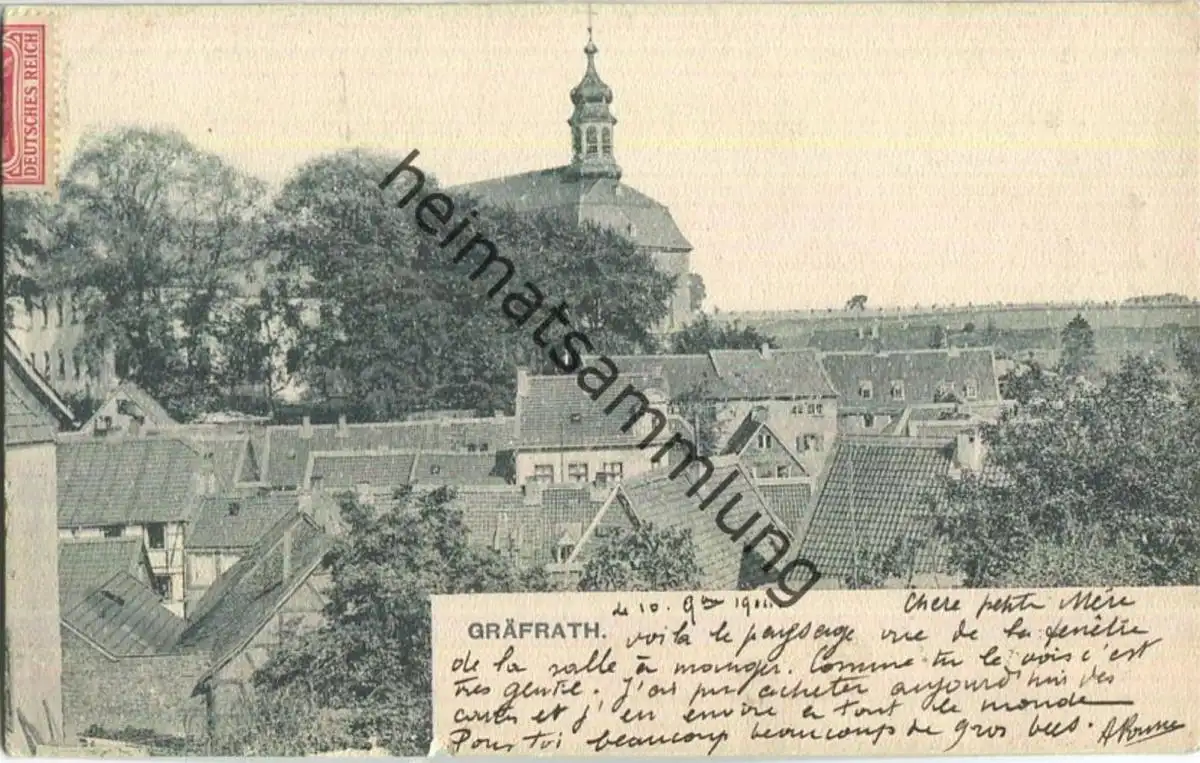 DEUTSCHES REICH
heimatsammlung
GRÄFRATH.
le 10. 9bre
Chere petite Mère
voilà le paysage vue de la fenêtre
de la salle à manger. Comme tu le vois c'est
très gentil. J'ai pu acheter aujourd'hui des
cartes et j'en envoie a tout le monde
Pour toi beaucoup beaucoups de gros bees.